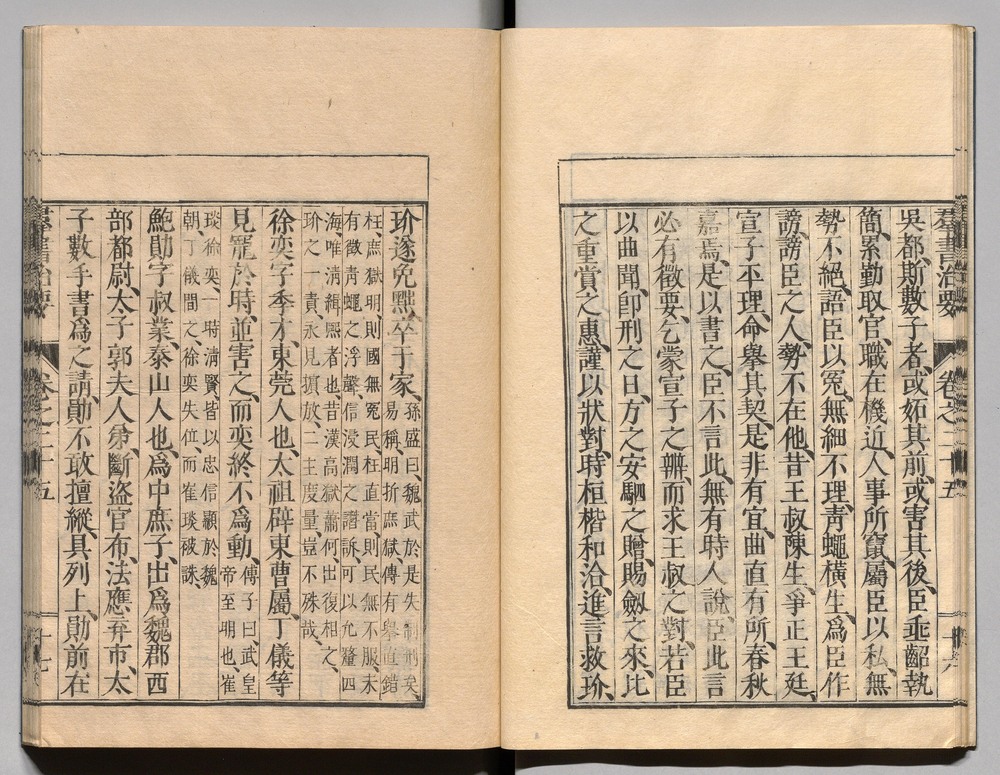 羣書治要 卷之二十五 十六
吳都、斯數子者、或妬其前、或害其後、臣垂齠執
簡、累勤取官、職在機近、人事所竄、屬臣以私、無
勢不絕、語臣以冤、無細不理、靑蠅橫生、爲臣作
謗、謗臣之人、勢不在他、昔王叔陳生、爭正王廷、
宣子平理、命舉其契、是非有宜、曲直有所、春秋
嘉焉、是以書之、臣不言此、無有時人、說臣此言
必有徵要、乞蒙宣子之辨、而求王叔之對、若臣
以曲聞、卽刑之日、方之安駟之贈、賜劔之來、比
之重賞之惠、謹以狀對、時桓楷和洽、進言救玠、
玠遂免黜、卒于家、
孫盛曰、魏武於是失制刑矣、
易稱、明折庶獄、傳有舉直錯
枉、庶獄明、則國無冤民、枉直當則民無不服、未
有徵靑蠅之浮聲、信浸潤之譖訴、可以允釐四
海、唯淸緝熙者也、昔漢高獄蕭何、出復相之、
玠之一責、永見擯放、二主度量豈不殊哉、
徐奕字季才、東莞人也、太祖辟東曹屬、丁儀等
見寵於時、並害之、而奕終不爲動、
傳子曰、武皇
帝至明也、崔
琰徐奕、一時淸賢、皆以忠信顯於魏
朝、丁儀間之、徐奕失位、而崔琰被誅、
鮑勛字叔業、泰山人也、爲中庶子、出爲魏郡西
部都尉、太子郭夫人弟、斷盜官布、法應弃市、太
子數手書爲之請、勛不敢擅縱、具列上、勛前在
羣書治要 卷之二十五 十七